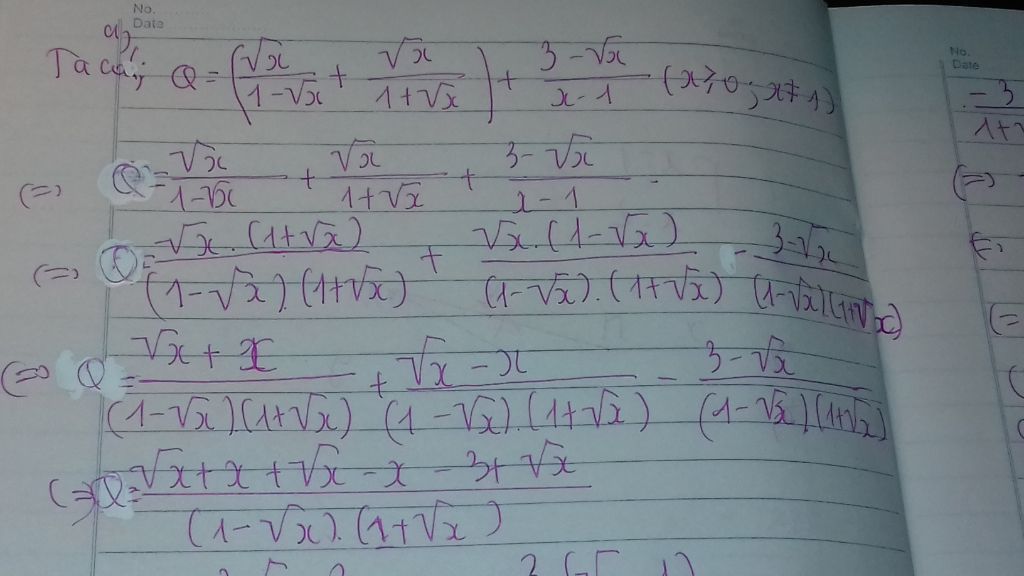 No.
Date
a),
Ta có: Q = (√x/(1-√x) + √x/(1+√x)) + (3-√x)/(x-1) (x≥0; x≠1)
(=) Q = √x/(1-√x) + √x/(1+√x) + (3-√x)/(x-1)
(=) Q = √x.(1+√x)/((1-√x).(1+√x)) + √x.(1-√x)/((1-√x).(1+√x)) - (3-√x)/((1-√x)(1+√x))
(=) Q = (√x+x)/((1-√x)(1+√x)) + (√x-x)/((1-√x).(1+√x)) - (3-√x)/((1-√x)(1+√x))
(=) Q = (√x+x+√x-x-3+√x)/((1-√x).(1+√x))
No.
Date
-3
1+√
(=)
(=
(=